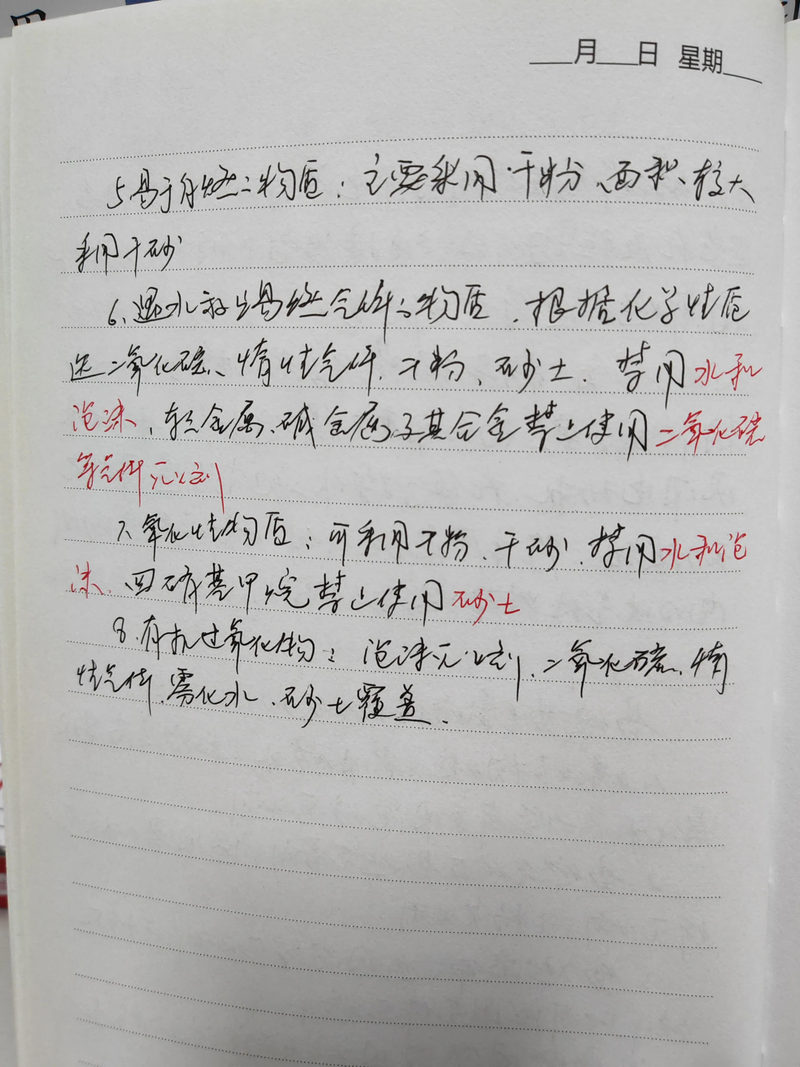 月 日 星期
5.易于自燃之物质：主要采用干粉、面积较大
利用干砂
6、遇水放出易燃气体之物质，根据化学性质
选二氧化碳、惰性气体、干粉、砂土．禁用水和
泡沫，轻金属、碱金属及其合金禁止使用二氧化碳
等气体灭火剂
7、氧化性物质：可利用干粉、干砂．禁用水和泡
沫．四硝基甲烷禁止使用砂土
8.有机过氧化物：泡沫灭火剂、二氧化碳、惰
性气体、雾化水、砂土覆盖．